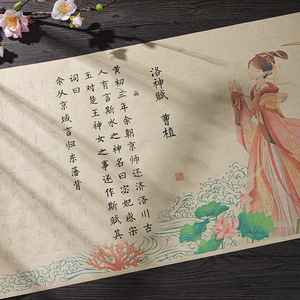 洛神赋 曹植
黄初三年余朝京师还济洛川古
人有言斯水之神名曰宓妃感宋
王对楚王神女之事遂作斯赋其
词曰
余从京域言归东藩背